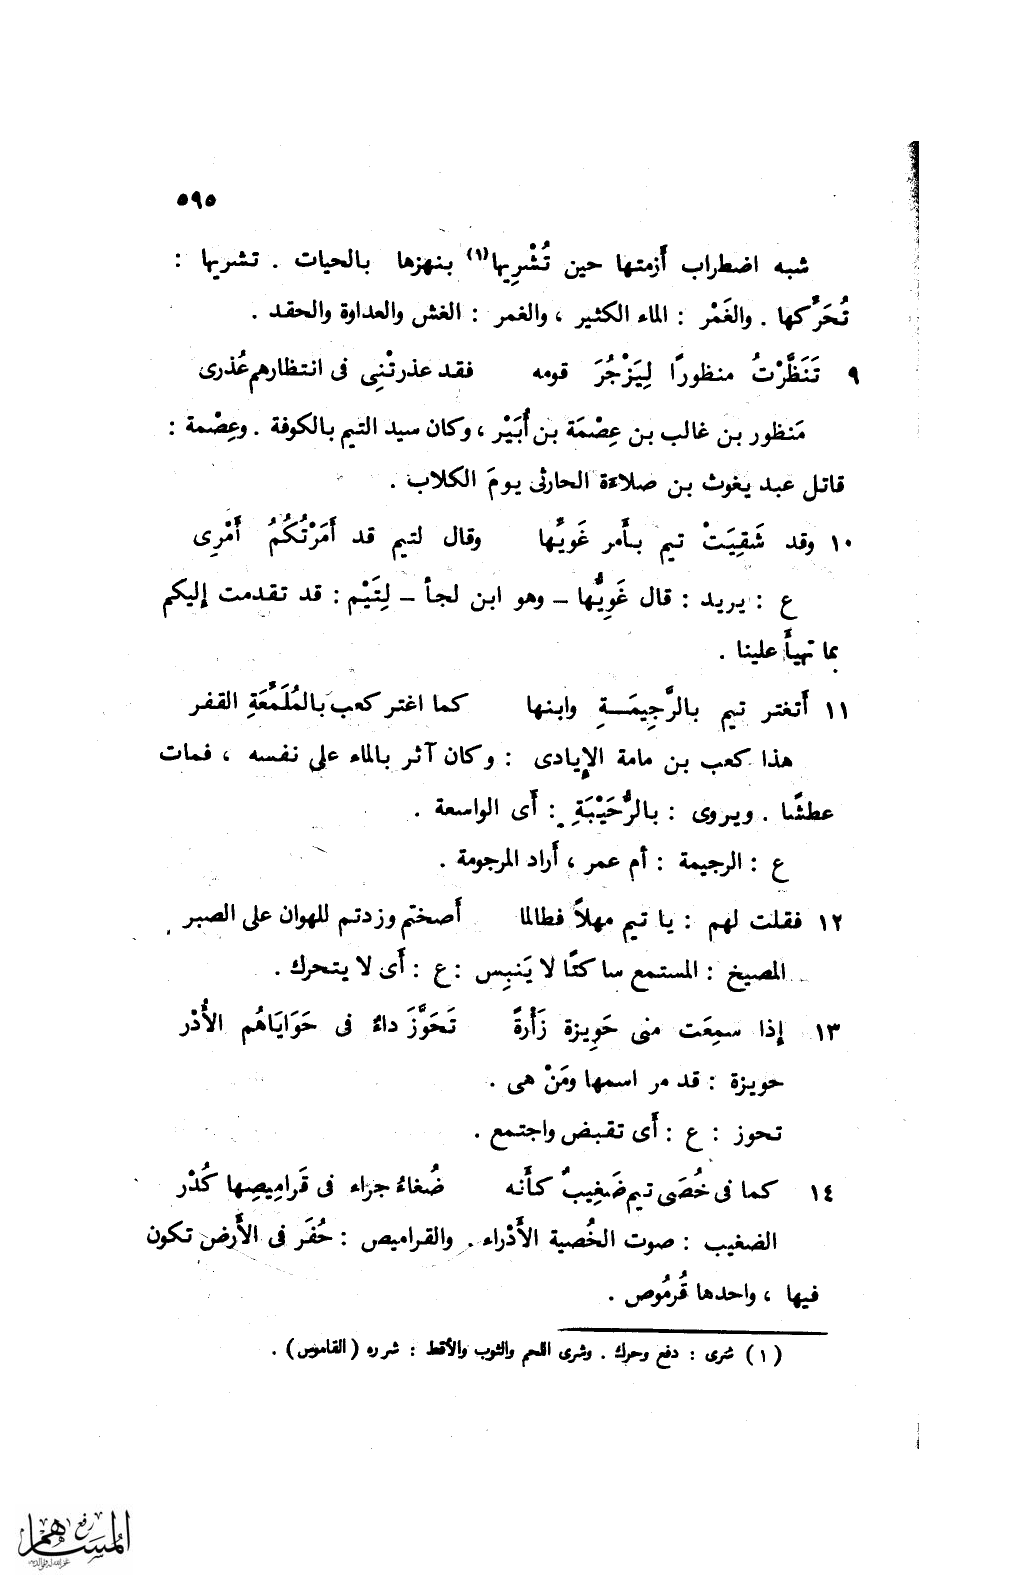 ٥٩٥
شبه اضطراب أزمتها حين تُشْرِيها(١) بنهزها بالحيات . تشريها :
تُحَرِّكها . والغَمْر : الماء الكثير ، والغمر : الغش والعداوة والحقد .
٩ تَنَظَّرْتُ منظورًا لِيَزْجُرَ قومه فقد عذرتْنِى فى انتظارهم عُذرى
مَنظور بن غالب بن عِصْمَة بن أُبَيْر ، وكان سيد التيم بالكوفة . وعِصْمة :
قاتل عبد يغوث بن صلاءة الحارثى يومَ الكلاب .
١٠ وقد شَقِيَتْ تيم بأمر غَوِيِّها وقال لتيم قد أَمَرْتُكُمُ أَمْرِى
ع : يريد : قال غَوِيُّها – وهو ابن لجأ – لِتَيْم : قد تقدمت إليكم
بما تهيأ علينا .
١١ أَتغتر تيم بالرَّجِيمَةِ وابنها كما اغتر كعب بالمُلَمَّعَةِ القفر
هذا كعب بن مامة الإيادى : وكان آثر بالماء على نفسه ، فمات
عطشًا . ويروى : بالرُّحَيْبَةِ : أَى الواسعة .
ع : الرجيمة : أم عمر ، أَراد المرجومة .
١٢ فقلت لهم : يا تيم مهلاً فطالما أَصختم وزدتم للهوان على الصبر
المصيخ : المستمع ساكتًا لا يَنبِس : ع : أَى لا يتحرك .
١٣ إذا سمِعَت منى حَوِيزة زَأْرةً تَحَوَّزَ داءٌ فى حَوَايَاهُم الأُدْر
حويزة : قد مر اسمها ومَنْ هى .
تحوز : ع : أَى تقبض واجتمع .
١٤ كما فى خُصَى تيم ضَغِيبٌ كأَنه ضُغاءُ جراء فى قَرامِيصِها كُدْر
الضغيب : صوت الخُصية الأَدْراء . والقراميص : حُفَر فى الأَرض تكون
فيها ، واحدها قُرمُوص .
(١) شرى : دفع وحرك . وشرى اللحم والثوب والأقط : شرره (القاموس) .
رفع
المساهم